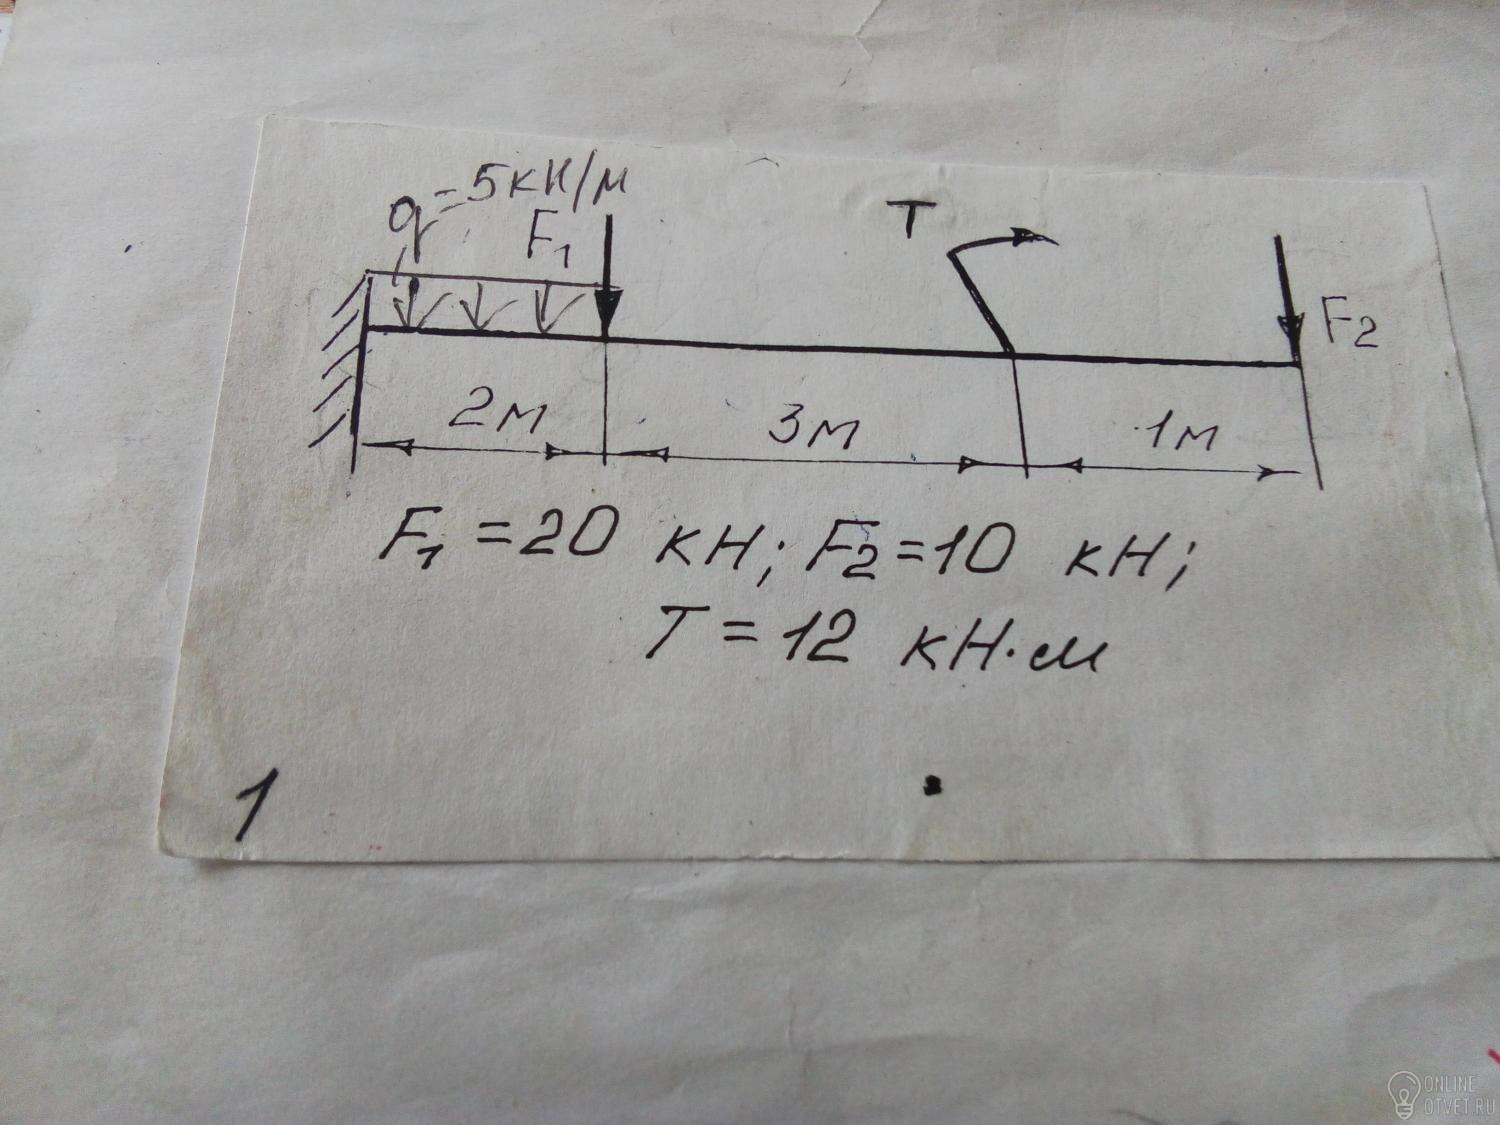 q=5кН/м
F₁
T
F₂
2м
3м
1м
F₁ = 20 кН; F₂ = 10 кН;
T = 12 кН·м
1
ONLINE
OTVET.RU